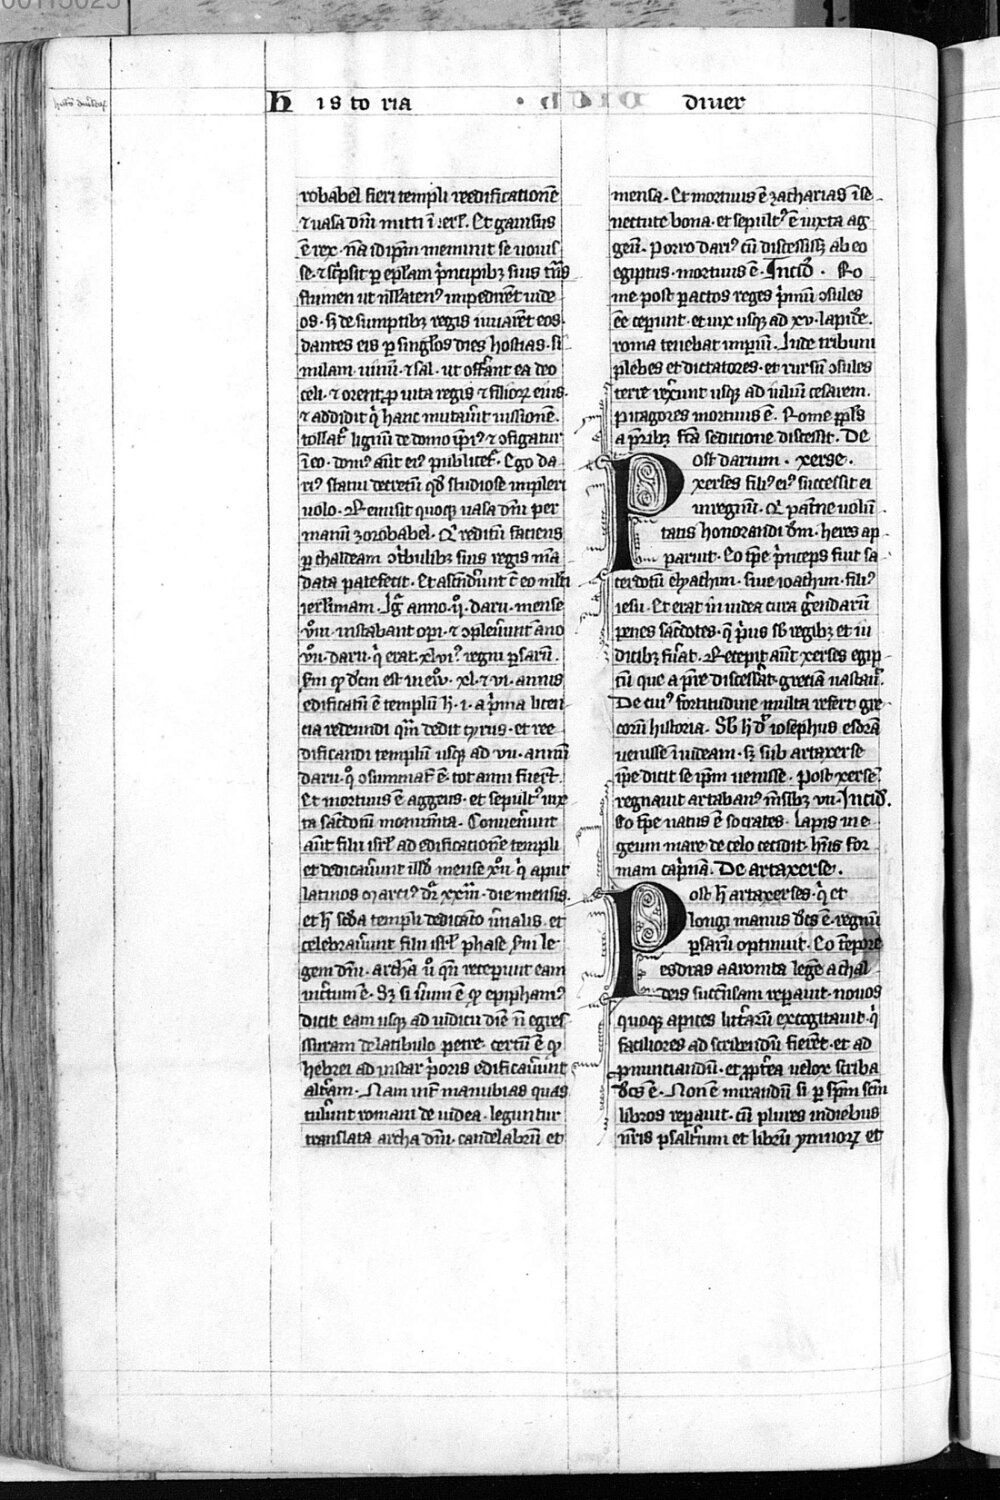 historia diuer
robabel fieri templi reedificationē
⁊ uasa dn̄i mitti ī ierl̄. Et gauisus
ē rex. nā id ip̄m meminit se uouis
se. ⁊ sc̄psit ꝑ ep̄lam p̄ncipibꝫ suis tn̄s
flumen ut nllatenꝰ impedirēt iude
os. sꝫ de sumptibꝫ regis iuuarēt eos
dantes eis ꝑ singl̄os dies hostias. si
milam uinū. ⁊ sal. ut offr̄ant ea deo
celi. ⁊ orent ꝓ uita regis ⁊ filioꝝ eius.
⁊ addidit qͥ hanc mutau̓it iussionē.
tollat᷑ lignū de domo ip̄iꝰ ⁊ ɔfigatur
ī eo. domꝰ aūt eiꝰ publicet᷑. Ego da
riꝰ statui decretū qd̄ studiose impleri
uolo. Remisit quoqꝫ uasa dn̄i per
manū zorobabel. Qi reditū faciens
ꝑ chaldeam ɔt̓bulibꝫ suis regis mā
data patefecit. Et ascend̓unt cū eo
ierl̄imam. Igr̄ anno. ij. darii. mense
viij. instabant opi. ⁊ ɔpleu̓unt āno
vij. darii. qͥ erat. xlviꝰ. regni ꝑsarū.
Sm̄ qͦ dc̄m est in euͦ. xl. ⁊ vi. annis
edificatū ē templū h̄. i. a p̄ma licen
cia redeundi qm̄ dedit cyrus. et ree
dificandi templū usqꝫ ad vii. annū
darii. qͦ ɔsummat᷑ ē. tot anni fuer̄t.
Et mortuus ē aggeus. et sepultꝰ iux
ta sac̓dotū monum̄ta. Conuen̓unt
aūt filii isrl̄ ad edificationē templi
et dedicau̓unt illd̄ mense xij. qͥ aput
latinos marciꝰ dr̄. xxiii. die mensis.
et h̄ sc̄da templi dedicatō h̓nalis. et
celebrau̓unt filii isrl̄ phase sm̄ le
gem dn̄i. archā ū qn̄ receperunt eam
inc̓tum ē. Sꝫ si uerum ē qͦ epiphanꝰ
dicit eam usqꝫ ad iudicii diē n̄ egres
suram de latibulo petre. certū ē qͦ
hebrei ad instar p̓oris edificau̓unt
alt̓am. Nam int̓ manubias quas
tul̓unt romani de iudea. leguntur
translata archa dn̄i. candelabrū et
mensa. Et mortuus ē zacharias ī se
nectute bona. et sepultꝰ ē iuxta ag
geū. Porro dariꝰ cū discessissꝫ ab eo
egiptus. mortuus ē. Incid̄. Ro
me post ꝑactos reges p̄mū ɔsules
eē ceperunt. et uix usqꝫ ad xv. lapidē.
roma tenebat impiū. Inde tribuni
plebes et dictatores. et rursū ɔsules
terre rexerunt usqꝫ ad iulium cesarem.
Pitagores mortuus ē. Rome ppl̄s
a pr̄ibꝫ fc̄a sedicione discessit. De
Post darium. xerse.
xerses filiꝰ eiꝰ successit ei
in regnū. Qi pat̓ne uolū
tatis honorandi dm̄. heres ap
paruit. Eo tp̄e p̄nceps fuit sa
cerdotū elyachim. siue ioachim. filiꝰ
iesu. Et erat in iudea cura gerendarū
penes sac̓dotes. q̄ pͥus sb̄ regibꝫ et iu
dicibꝫ fu̓at. Recepit aūt xerses egip
tū que a pr̄e discess̓at. greciā uastauit.
De cuiꝰ fortitudine multa refert gre
corū historia. Sb̄ h̄ dr̄ iosephus esdrā
uenisse ī iudeam. sꝫ sub artaxerse
ip̄e dicit se ip̄m uenisse. Post xersē
regnauit artabanꝰ m̄sibꝫ vii. Incid̄.
Eo tp̄e natus ē socrates. Lapis in e
geum mare de celo cecidit. hn̄s for
mam cap̄nā. De artaxerse.
Post h̄ artaxerses. qͥ et
longimanus dc̄s ē. regnū
ꝑsarū optinuit. Eo tempore
esdras aaronita legē a chal
deis succ̄nsam repauit. nouos
quoqꝫ apices litt̓arū excogitauit. qͥ
faciliores ad scribendū fierēt. et ad
ꝓnunciandū. et ꝓpt̓ea uelox scriba
dc̄s ē. Non ē mirandū si ꝑ sp̄m sc̄m
libros repauit. cū plures in diebus
nr̄is psalt̓ium et librū ymnoꝝ et